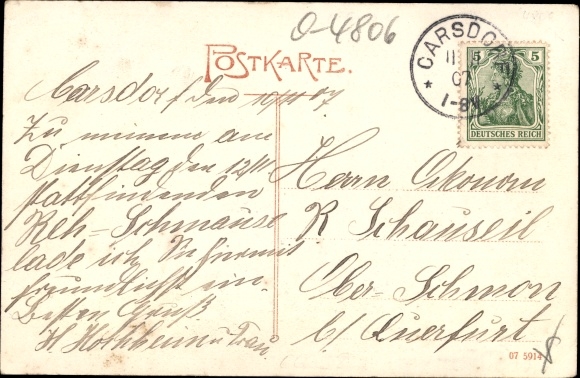 O-4806
POSTKARTE.
CARSDO
11
07
1-8N
5 5
DEUTSCHES REICH
Carsdorf den 10/11 07
Zu meinem am
Dienstag den 12/11
stattfindenden
Reh-Schmause
lade ich Sie hiermit
freundlichst ein.
Besten Gruß
u Frau
Herrn Ökonom
R Schauseil
Ober-Schmon
b/ Querfurt
07 5914